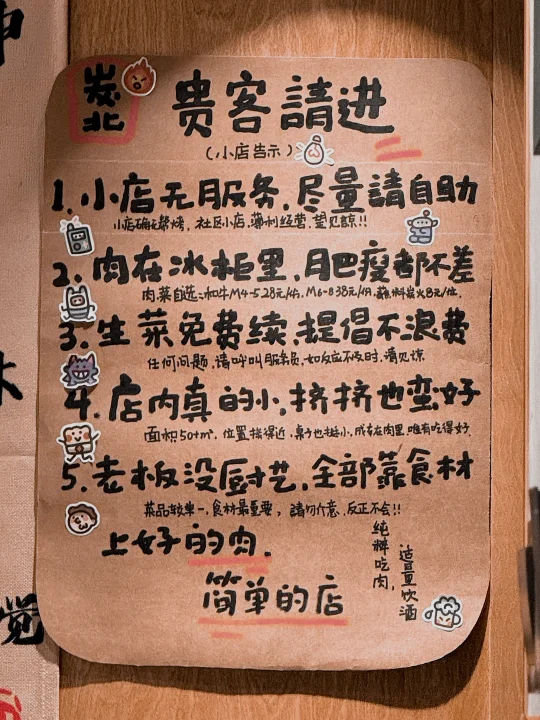 炭北
贵客請进
(小店告示)
1.小店无服务,尽量請自助
小店确无帮烤,社区小店,薄利经营,望见諒!!
2.肉在冰柜里,肥瘦都不差
肉菜自选:和牛M4-5 28元/份,M6-8 38元/份,蘸料炭火8元/位.
3.生菜免费续,提倡不浪费
任何问题,请呼叫服务员,如反应不及时,请见谅
4.店内真的小,挤挤也蛮好
面积50+m²,位置挨得近,桌子也挺小,成在肉里,唯有吃得好.
5.老板没厨艺,全部靠食材
菜品较单一,食材最重要,請勿介意,反正不会!!
上好的肉,
简单的店
纯粹吃肉,
适量饮酒
觉